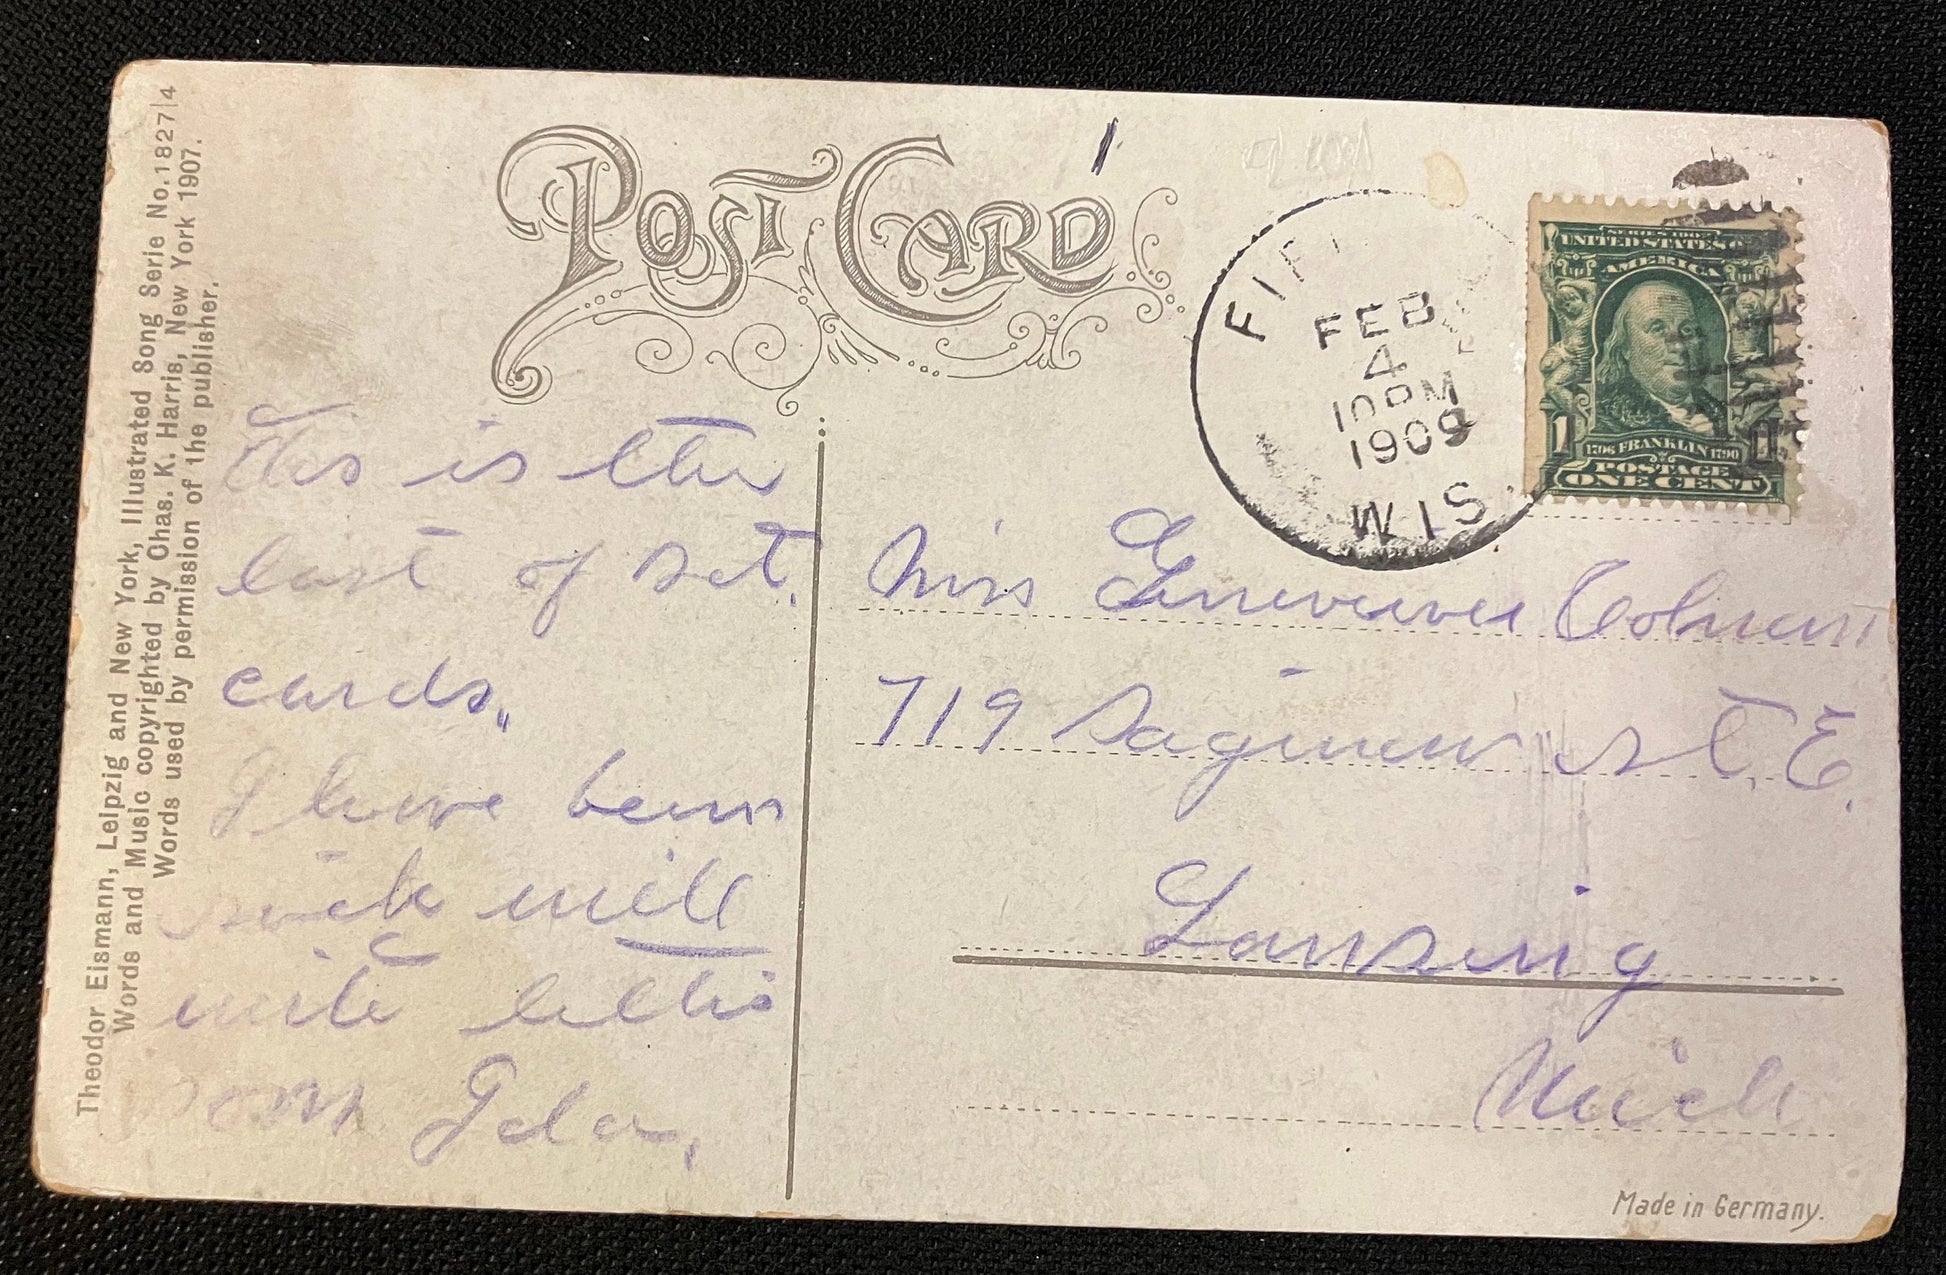 Theodor Eismann, Leipzig and New York, Illustrated Song Serie No. 1827|4
Words and Music copyrighted by Chas. K. Harris, New York 1907.
Words used by permission of the publisher.
POST CARD
This is the
last of set.
cards.
I have been
sick will
write
soon
FIFI
FEB
4
10 PM
1909
WIS.
SERIES 1902
UNITED STATES OF
AMERICA
1 1
1706 FRANKLIN 1790
POSTAGE
ONE CENT
Miss Genevieve
719 Saginaw St. E.
Lansing
Mich
Made in Germany.